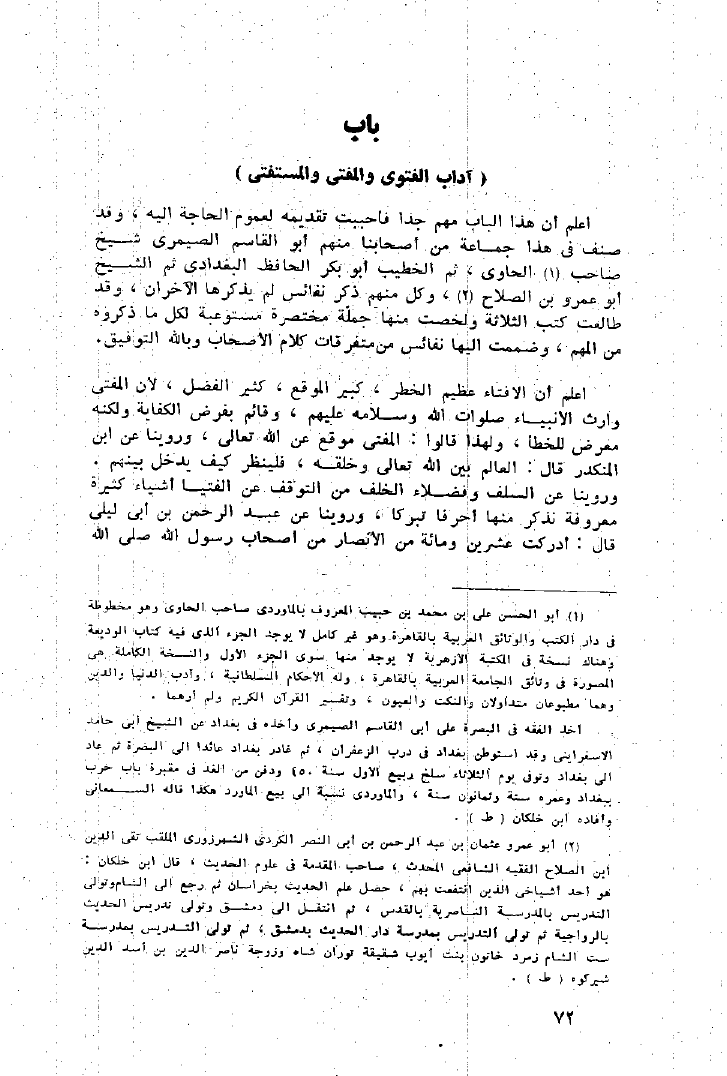 باب
( آداب الفتوى والمفتى والمستفتى )
اعلم أن هذا الباب مهم جدا فاحببت تقديمه لعموم الحاجة اليه ، وقد
صنف فى هذا جماعة من أصحابنا منهم أبو القاسم الصيمرى شـيخ
صاحب (١) الحاوى ، ثم الخطيب أبو بكر الحافظ البغدادى ثم الشـيخ
أبو عمرو بن الصلاح (٢) ، وكل منهم ذكر نفائس لم يذكرها الآخران ، وقد
طالعت كتب الثلاثة ولخصت منها جملة مختصرة مستوعبة لكل ما ذكروه
من المهم ، وضممت اليها نفائس من متفرقات كلام الأصحاب وبالله التوفيق.
اعلم أن الافتاء عظيم الخطر ، كبير الموقع ، كثير الفضل ، لأن المفتى
وارث الأنبيـاء صلوات الله وسـلامه عليهم ، وقائم بفرض الكفاية ولكنه
معرض للخطأ ، ولهذا قالوا : المفتى موقع عن الله تعالى ، وروينا عن ابن
المنكدر قال : العالم بين الله تعالى وخلقـه ، فلينظر كيف يدخل بينهم .
وروينا عن السلف وفضـلاء الخلف من التوقف عن الفتيـا أشياء كثيرة
معروفة نذكر منها أحرفا تبركا ، وروينا عن عبـد الرحمن بن أبى ليلى
قال : أدركت عشرين ومائة من الأنصار من أصحاب رسول الله صلى الله
(١) أبو الحسن على بن محمد بن حبيب المعروف بالماوردى صاحب الحاوى وهو مخطوطة
فى دار الكتب والوثائق العربية بالقاهرة وهو غير كامل لا يوجد الجزء الذى فيه كتاب الوديعة
وهناك نسخة فى المكتبة الأزهرية لا يوجد منها سوى الجزء الأول والنسخة الكاملة هى
المصورة فى وثائق الجامعة العربية بالقاهرة ، وله الأحكام السلطانية ، وأدب الدنيا والدين
وهما مطبوعان متداولان والنكت والعيون ، وتفسير القرآن الكريم ولم أرهما .
أخذ الفقه فى البصرة على أبى القاسم الصيمرى وأخذه فى بغداد عن الشيخ أبى حامد
الاسفراينى وقد استوطن بغداد فى درب الزعفران ، ثم غادر بغداد عائدا الى البصرة ثم عاد
الى بغداد وتوفى يوم الثلاثاء سلخ ربيع الأول سنة ٤٥٠ ودفن من الغد فى مقبرة باب حرب
ببغداد وعمره ستة وثمانون سنة ، والماوردى نسبة الى بيع الماورد هكذا قاله السـمعانى
وأفاده ابن خلكان ( ط ) .
(٢) أبو عمرو عثمان بن عبد الرحمن بن أبى النصر الكردى الشهرزورى الملقب تقى الدين
ابن الصلاح الفقيه الشافعى المحدث ، صاحب المقدمة فى علوم الحديث ، قال ابن خلكان :
هو أحد أشياخى الذين انتفعت بهم ، حصل علم الحديث بخراسان ثم رجع الى الشام وتولى
التدريس بالمدرسة الناصرية بالقدس ، ثم انتقل الى دمشق وتولى تدريس الحديث
بالرواحية ثم تولى التدريس بمدرسة دار الحديث بدمشق ، ثم تولى التـدريس بمدرسـة
ست الشام زمرد خاتون بنت أيوب شقيقة توران شاه وزوجة ناصر الدين بن أسد الدين
شيركوه ( ط ) .
٧٢